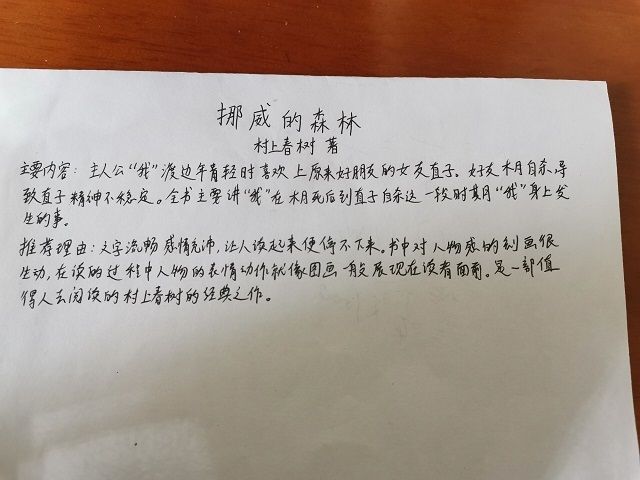 挪威的森林
村上春树 著
主要内容：主人公“我”渡边年青轻时喜欢上原来好朋友的女友直子。好友木月自杀，导
致直子精神不稳定。全书主要讲“我”在木月死后到直子自杀这一段时期“我”身上发
生的事。
推荐理由：文字流畅感情充沛，让人读起来便停不下来。书中对人物感的刻画很
生动，在读的过程中人物的表情动作就像图画一般展现在读者面前。是一部值
得人去阅读的村上春树的经典之作。